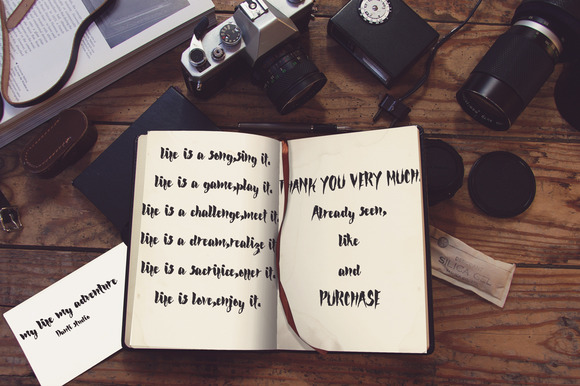 life is a song,sing it.
life is a game,play it.
life is a challenge,meet it.
life is a dream,realize it
life is a sacrifice,offer it.
life is love,enjoy it.
THANK YOU VERY MUCH.
Already seen,
like
and
PURCHASE
my life my adventure
studio
SILICA GEL